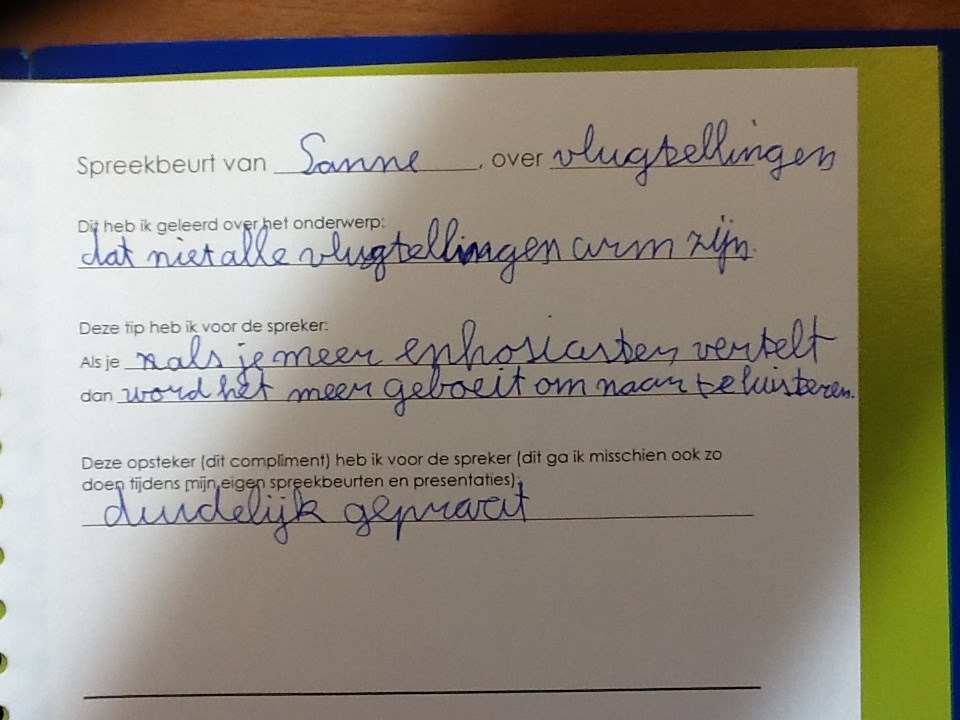 Spreekbeurt van Sanne, over vlugtellingen
Dit heb ik geleerd over het onderwerp:
dat niet alle vlugtellingen arm zijn.
Deze tip heb ik voor de spreker:
Als je als je meer enhosiasten vertelt
dan word het meer geboeit om naar te luisteren.
Deze opsteker (dit compliment) heb ik voor de spreker (dit ga ik misschien ook zo
doen tijdens mijn eigen spreekbeurten en presentaties):
duidelijk gepraat